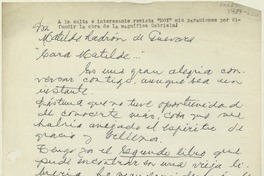 A la culta e interesante revista "HOY" mis parabienes por di-
fundir la obra de la magnífica Gabriela!
Matilde Ladrón de Guevara
"Cara Matilde...
Con una gran alegría con-
versar contigo, aunque sea un
instante.
Lástima que no tuve oportunidad
de conocerte más, cosa que me
habría anegado el espíritu de
gracia y belleza.
Tengo por el Segundo libro que
pude encontrar en una vieja li-